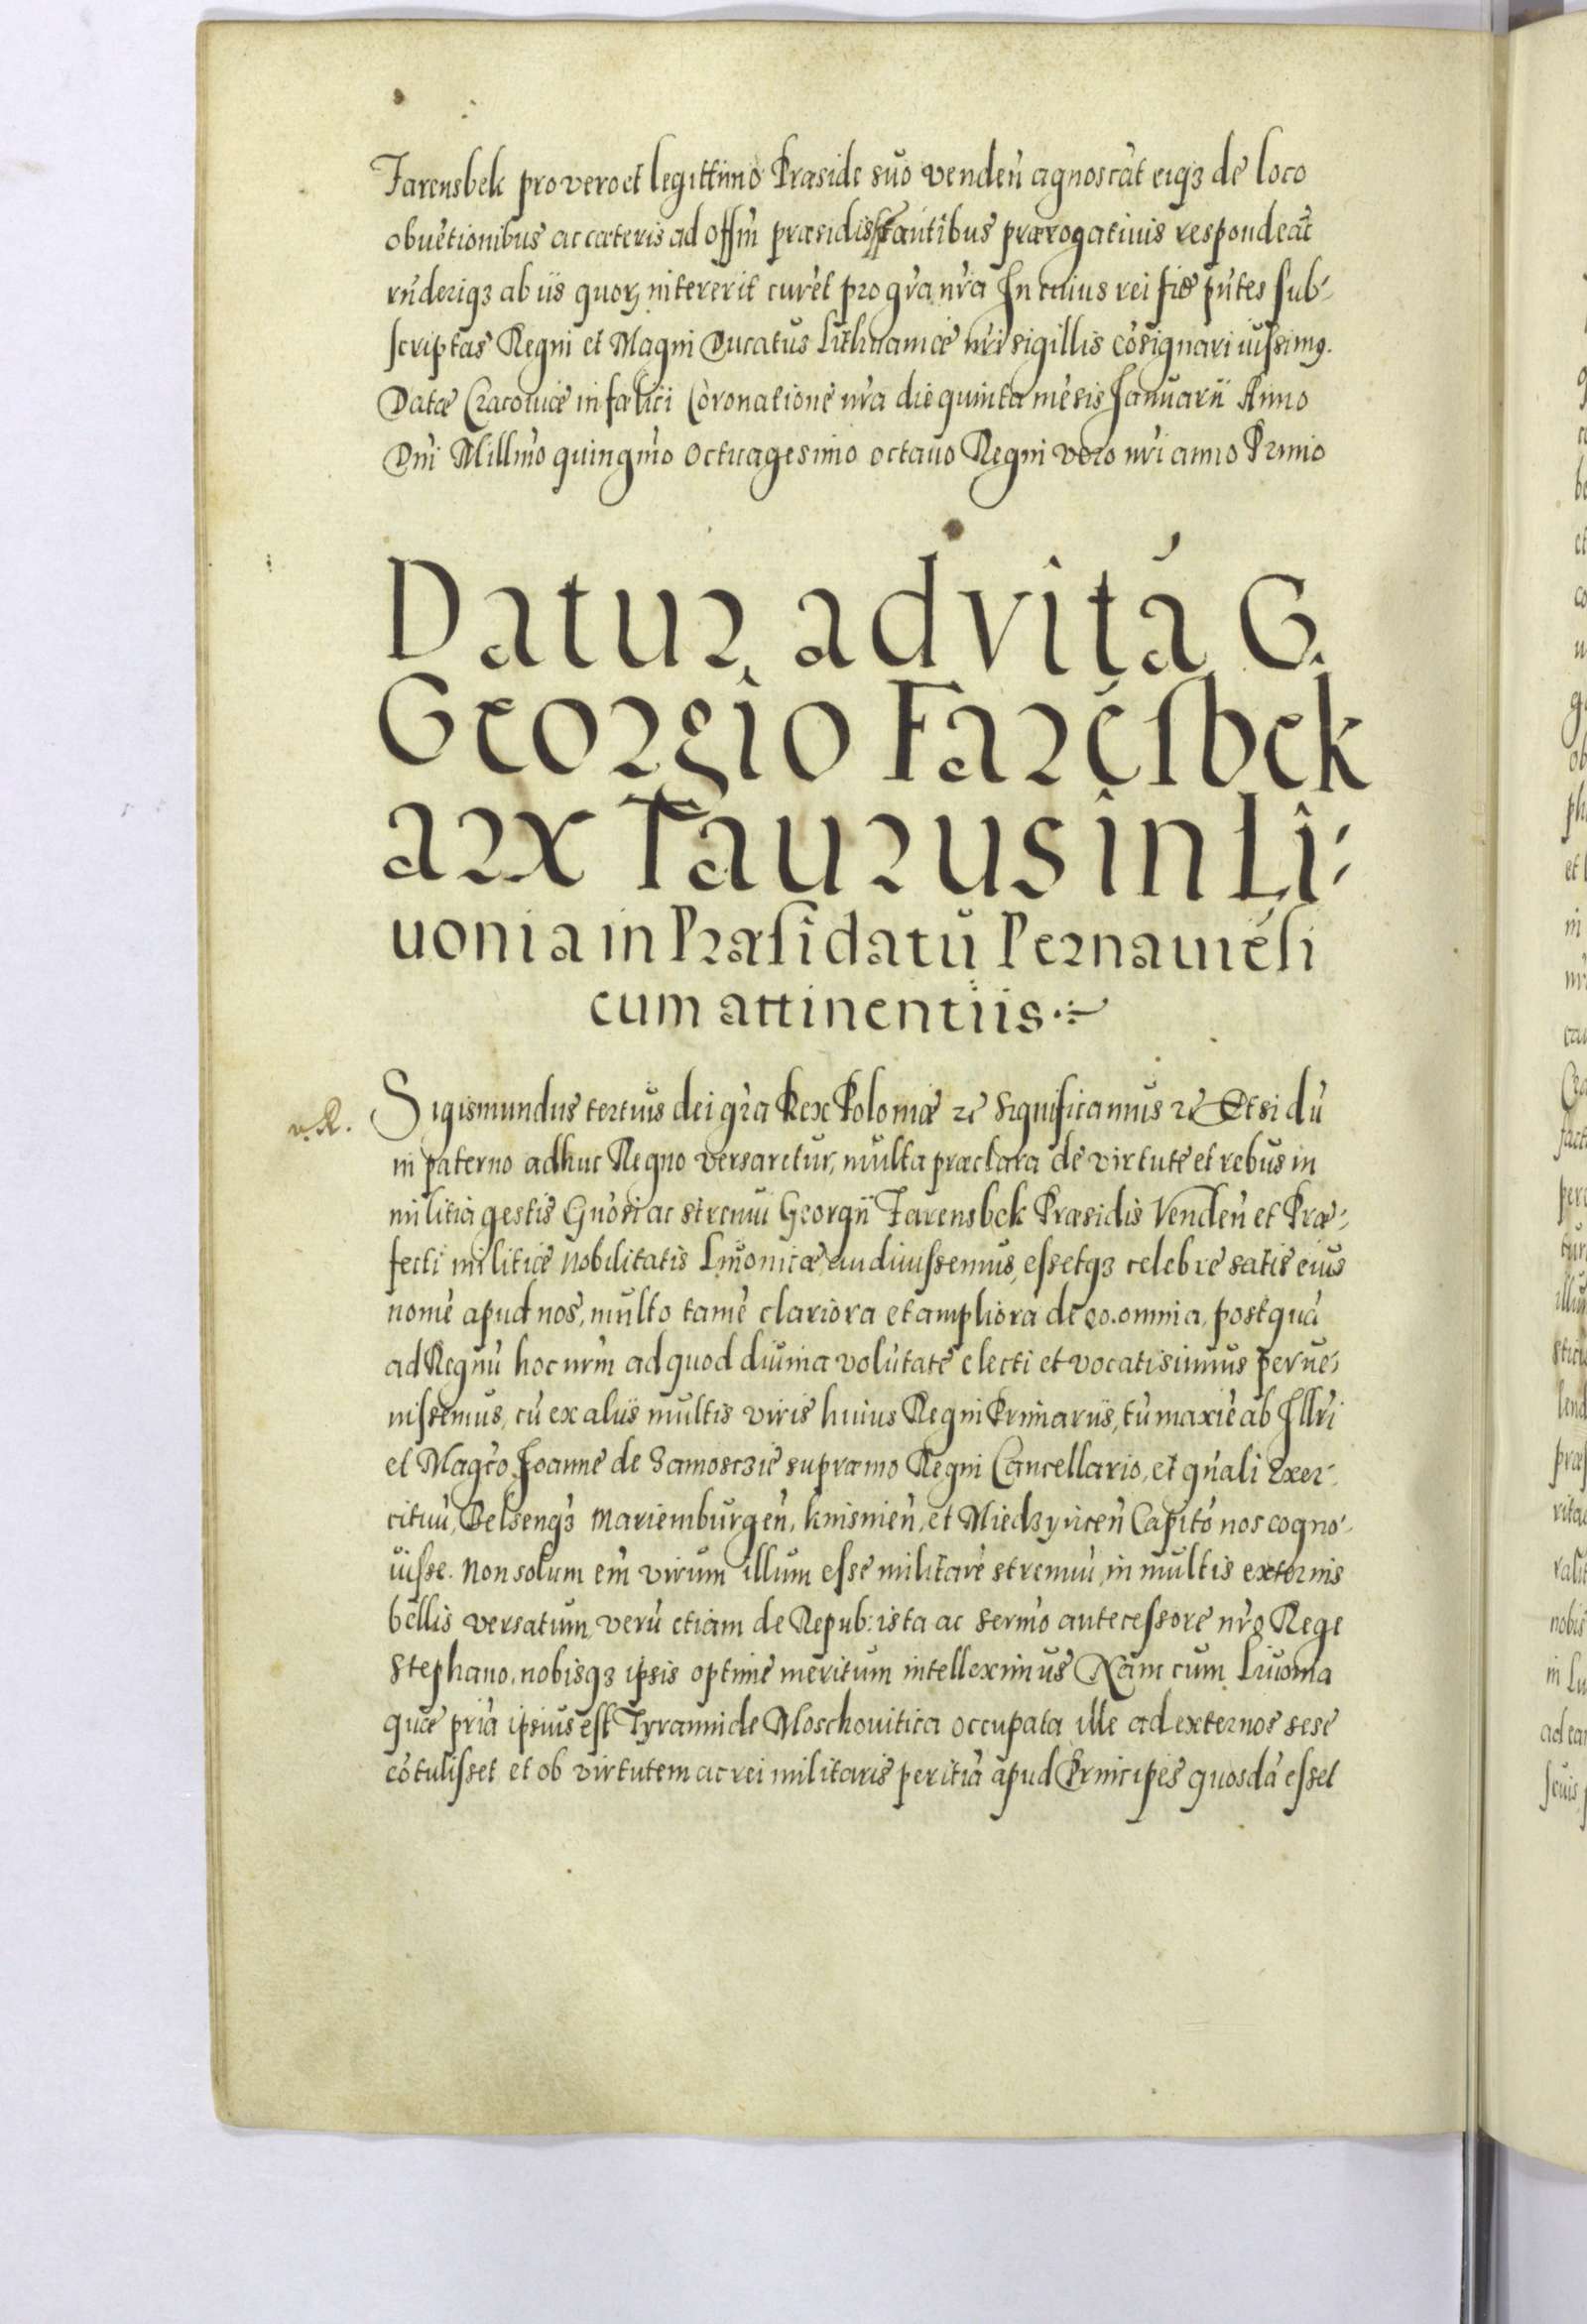 Farensbek pro vero et legittimo Præside suo Venden̄ agnoscāt eiqȝ de loco
obuētionibus ac cæteris ad offm̄ præsidis spectantibus prærogatiuis respondeāt
rn̄deriqȝ ab iis quorȝ intererit curēt pro gr̄a nr̄a In cuius rei fidē pn̄tes sub-
scriptas Regni et Magni Ducatus Lithuaniæ nr̄i sigillis cōsignari iussimꝰ.
Datæ Cracouiæ in fælici Coronatione nr̄a die quinta mēsis Januarii Anno
Dn̄i Millm̄o quingm̄o octuagesimo octauo Regni vero nr̄i anno Primo
Datur ad vitā G.
Georgio Farēsbek
arx Taurus in Li-
uonia in Præsidatū Pernauiēsi
cum attinentiis
v. R.
Sigismundus tertius dei gr̄a Rex Poloniæ ⁊c Significamus ⁊c Etsi dū
in paterno adhuc Regno versaretur, multa præclara de virtute et rebus in
militia gestis Gn̄osi ac strenui Georgii Farensbek Præsidis Venden̄ et Præ-
fecti militiæ nobilitatis Liuonicæ audiuissemus, essetqȝ celebre satis eius
nomē apud nos, multo tamē clariora et ampliora de eo omnia, postquā
ad Regnū hoc nr̄m ad quod diuina volūtate electi et vocati sumus perue-
nissemus, cū ex aliis multis viris huius Regni Primariis, tū maxiē ab Jllr̄i
et Magc̄o Joanne de Zamosczie supræmo Regni Cancellario, et gn̄ali Exer-
cituū, Belsenqȝ Mariemburgen̄, Knisinen̄, et Miedzyricen̄ Capitō nos cogno-
uisse. Non solum em̄ virum illum esse militarē strenuū, in multis externis
bellis versatum, verū etiam de Repub: ista ac serm̄o antecessore nr̄o Rege
Stephano, nobisqȝ ipsis optimē meritum intelleximus Nam cum Liuonia
quæ pr̄ia ipsius est Tyrannide Moschouitica occupata ille ad externos sese
cōtulisset et ob virtutem ac rei militaris peritiā apud Principes quosdā esset